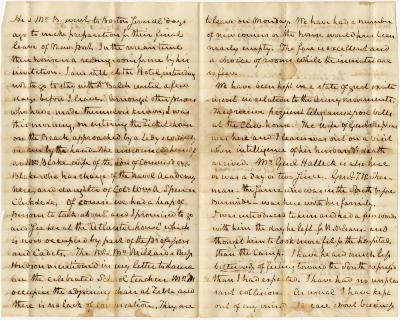 He & Mrs B. went to Boston some days
ago to make preparations for their final
leave of Newport. In the mean time
their house is a reading room for me by an
invitation. I am still at the Hotel intending
not to go to stay with Dr Balch until a few
days before I leave. Amongst other persons
who have made themselves known, I was
this morning, on entering the ticket door
on the Beach approached by a lady
by the hand. She announced herself
as Mrs Blake, wife of the son of Commodore
Blake who has charge of the Naval Academy
here, and daughter of Col. Wm A. Spencer
Of course we had a heap of
persons to talk about and I promised to go
and see her at the "Atlantic house" which
is now occupied by part of the professors
and Cadets. The Miss Willard & Miss
Hudson mentioned in my letter to
are the celebrated School teachers. Mr M
occupies the adjoining chair at table and
there is no lack of conversation. They are
to leave on Monday. We have had a number
of new comers or the house would have been
nearly empty. The fare is excellent and
a choice of rooms while the inmates are
so few.
We have been kept in a state of great excite
ment in relation to the Army movements.
They receive frequent telegrams, post bills
at the Club house. The wife of Genl
was here and I know was out on a visit
when intelligence of her husband's death
arrived. Mrs Genl Halleck is also here
or was a day or two since. Genl T. W. Sher-
man - the same who was in the South before
Burnside - was here with his family.
I was introduced to him and had a few words
with him the day he left for N. Orleans. and
thought him to look more fit for the hospital
than the Camp. I have heard much less
bitterness of feeling toward the South expressed
than I had expected. I have had no unpleas
ant collision. As usual I have kept
out of my mind to care about